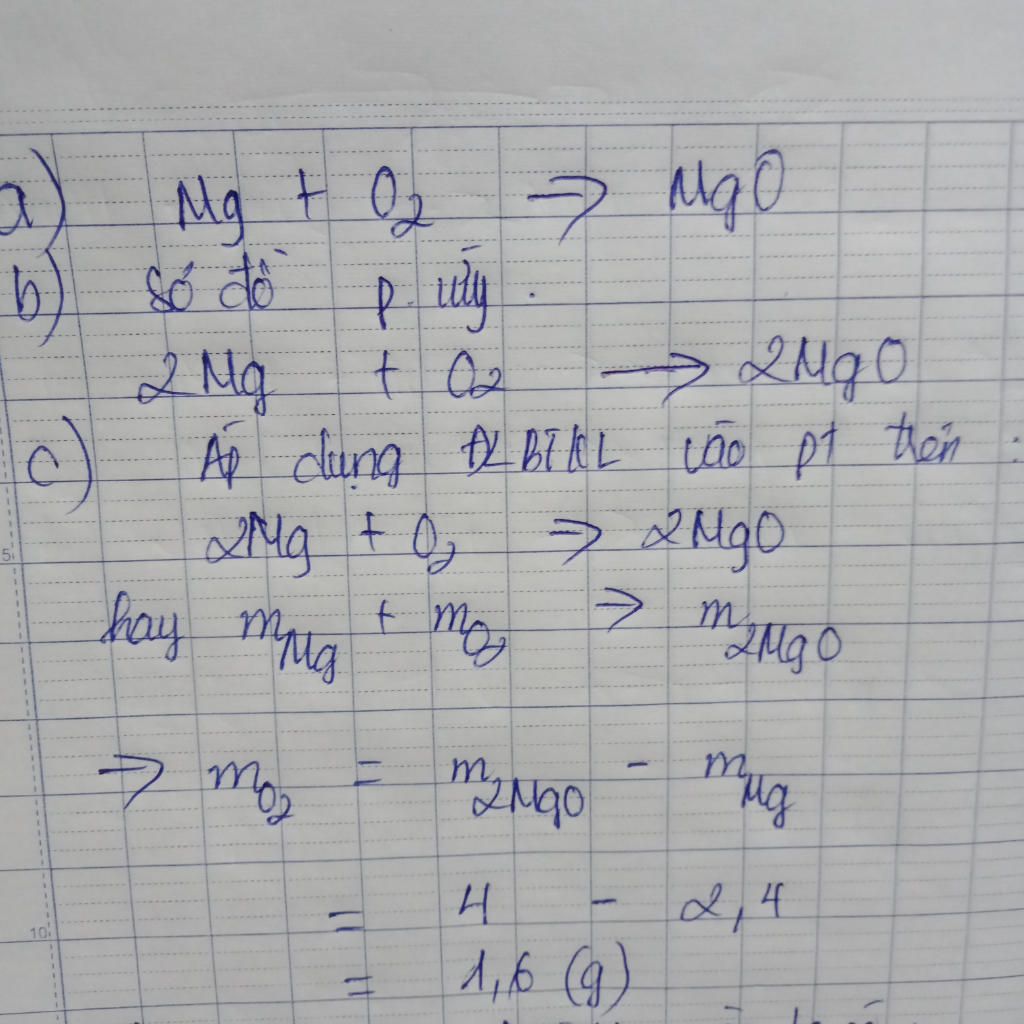 a) Mg + O₂ → MgO
b) Sơ đồ p. ứng.
2Mg + O₂ → 2MgO
c) Áp dụng ĐLBTKL vào pt trên :
2Mg + O₂ → 2MgO
hay m Mg + m O₂ → m 2MgO
5
→ m O₂ = m 2MgO - m Mg
= 4 - 2,4
10
= 1,6 (g)